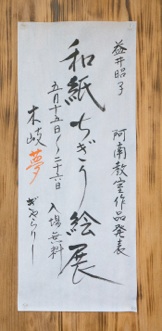 益井昭子 阿南教室作品発表
和紙ちぎり絵展
五月十五日〜二十六日 入場無料
木岐 夢 ぎゃらりー